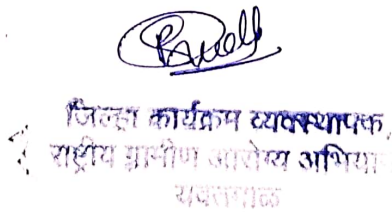 जिल्हा कार्यक्रम व्यवस्थापक
राष्ट्रीय ग्रामीण आरोग्य अभिया
यवतमाळ